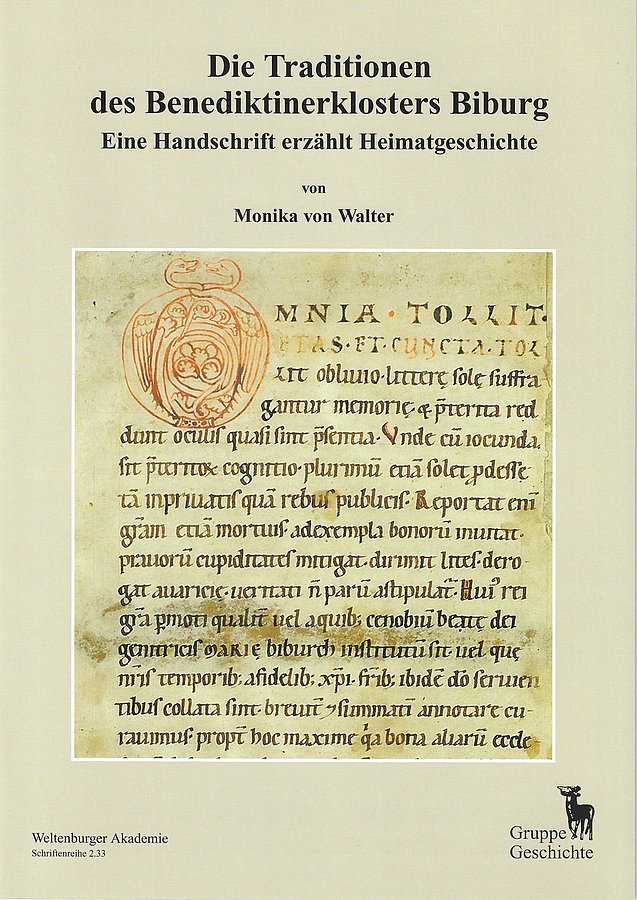 Die Traditionen
des Benediktinerklosters Biburg
Eine Handschrift erzählt Heimatgeschichte
von
Monika von Walter
MNIA · TOLLIT ·
ETAS · ET · CUNCTA · TOL
LIT oblivio · litterę solę suffra
gantur memorię · & p̄terita red
dunt oculis quasi sint p̄sentia · Unde cū iocunda
sit p̄teritoꝝ cognitio · plurimū etiā solet ꝓdesse
tā in privatis quā rebus publicis · Reportat enī
gr̄am etiā mortuis · ad exempla bonorū invitat ·
pravorū cupiditates mitigat · dirimit lites · dero
gat avaricię · veritati n̄ parū astipulat᷑ · Hui᷒ rei
gr̄a p̄moti qualit᷑ vel a quib; cenobiū beatę dei
genitricis MARIĘ biburch institutū sit · vel quę
nr̄is temporib; a fidelib; xp̄i · fr̄ib; ibidē dō servien
tibus collata sint · brevit᷑ ⁊ summatī annotare cu
ravimus · propt᷑ hoc maxime q̓a bona aliarū eccle
Weltenburger Akademie
Schriftenreihe 2.33
Gruppe
Geschichte